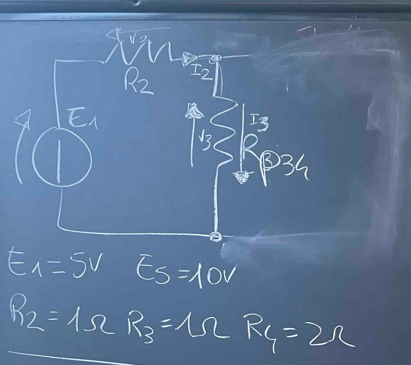 V2
R2
I2
E1
V3
I3
Rp34
E1=5V E5=10V
R2=1Ω R3=1Ω R4=2Ω